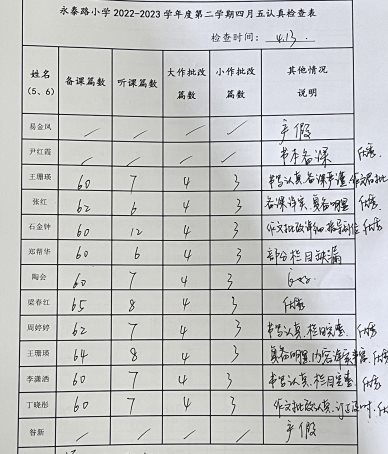 永泰路小学2022-2023学年度第二学期四月五认真检查表
检查时间： 4.13
姓名（5、6） 备课篇数 听课篇数 大作批改篇数 小作批改篇数 其他情况说明
易金凤 / / / / 产假
尹红霞 / / / / 书本备课 优秀
王珊瑛 60 7 4 3 书写认真，备课严谨
张红 62 6 4 3 备课详实，具备明显 优秀
石金钟 60 12 4 3 作文批改详细，指导到位 优秀
郑帮华 60 6 4 3 部分栏目缺漏
陶会 60 7 4 3 良好
梁春红 65 8 4 3 优秀
周婷婷 62 7 4 3 书写认真，栏目完整 优秀
王珊瑛 64 8 4 3 优秀
李潇洒 60 7 4 3 书写认真，栏目完整 优秀
丁晓彤 60 7 4 3 作文批改认真，
昝新 / / / / 产假